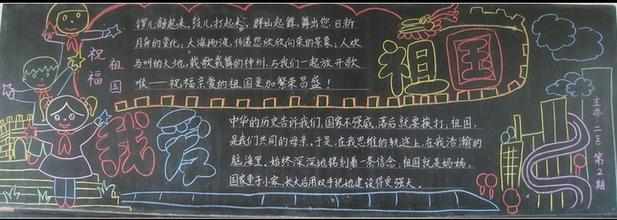 祝福
祖国
锣儿敲起来,鼓儿打起来,群山起舞,舞出您日新
月异的变化,大海扬波,传送您欣欣向荣的景象,人欢
马叫的大地,载歌载舞的神州,与我们一起放开歌
喉——祝福亲爱的祖国更加繁荣昌盛!
祖国
我爱
中华的历史告诉我们,国家不强盛,落后就要挨打,祖国,
是我们共同的母亲,于是,在我思维的轨迹上,在我浩瀚的
脑海里,始终深深地镌刻着一条信念,祖国就是妈妈,
国家童子小家,长大后用双手把她建设得更强大。
主办 二5
第2期